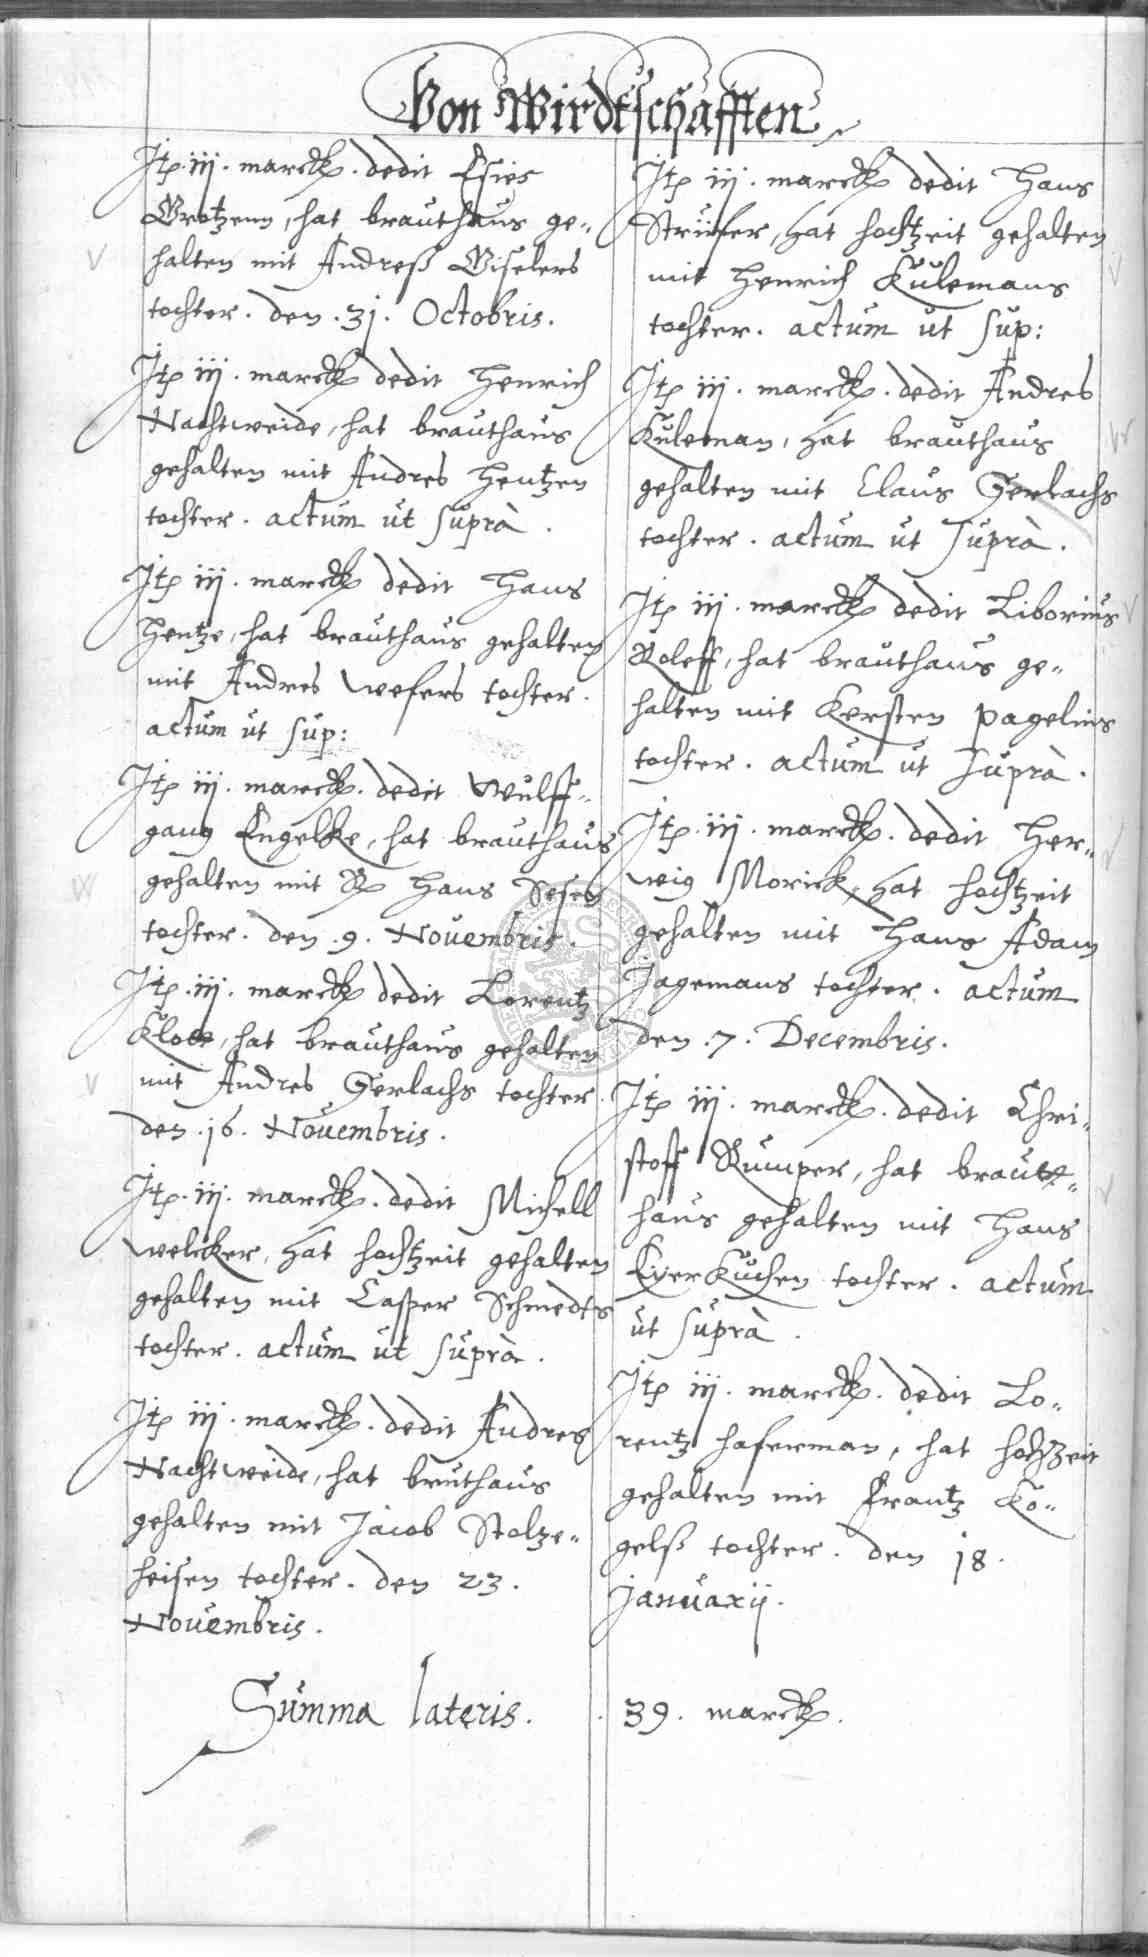 Von Wirdtschafften
Itp. iij. marck. dedit Esies
Grotzenn, hat brauthaus ge„
halten mit Andreß Giselers
tochter. den. 31. Octobris.
Itp iij. marck dedit Henrich
Nachtweide, hat brauthaus
gehalten mit Andres Hentzen
tochter. actum ut suprà.
Itp iij. marck dedit Hans
Hentze, hat brauthaus gehalten
mit Andres Wefers tochter.
actum ut sup:
Itp iij. marck. dedit Wulff„
gang Engelke, hat brauthaus
gehalten mit Hans Sesen
tochter. den. 9. Novembris.
Itp. iij. marck dedit Lorentz
Klote, hat brauthaus gehalten
mit Andres Gerlachs tochter.
den. 16. Novembris.
Itp. iij. marck. dedit Michell
Welcker, hat hochtzeit gehalten
gehalten mit Casper Schmedts
tochter. actum ut suprà.
Itp iij. marck. dedit Andres
Nachtweide, hat bruthaus
gehalten mit Jacob Stolze„
heisen tochter. den 23.
Novembris.
Itp iij. marck dedit Hans
Strüfer, hat hochtzeit gehalten
mit Henrich Kulemans
tochter. actum ut sup:
Itp iij. marck. dedit Andres
Kuleman, hat brauthaus
gehalten mit Claus Gerlachs
tochter. actum ut suprà.
Itp iij. marck dedit Liborius
Roleff, hat brauthaus ge„
halten mit Kersten Pagelins
tochter. actum ut suprà.
Itp. iij. marck. dedit Her„
wig Morick, hat hochtzeit
gehalten mit Hans Adam
Jagemans tochter. actum
den. 7. Decembris.
Itp iij. marck. dedit Chri„
stoff Rumper, hat braut„
haus gehalten mit Hans
Eyerkuchen tochter. actum
ut suprà.
Itp iij. marck. dedit Lo„
rentz Haferman, hat hochzeit
gehalten mit Frantz Ko„
gelß tochter. den 18.
Januarij.
Summa lateris. 39. marck.